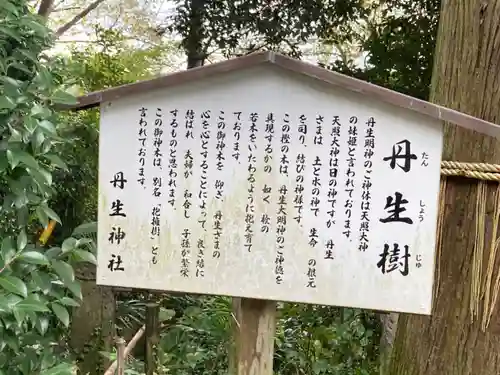 丹生樹
たん しょう じゅ
丹生明神のご神体は天照大神
の妹姫と言われております
天照大神は日の神ですが 丹生
さまは 土と水の神で 生命 の根元
を司り、結びの神様です。
この樫の木は、丹生大明神のご神徳を
具現するかの 如く、秋の
若木をいたわるように抱え育て
ております。
この御神木 を仰ぎ、丹生さまの
心を心とすることによって、良き結に
結ばれ 夫婦が 和合し 子孫が繁栄
するものと思われます。
この御神木は、別名「抱擁樹」とも
言われております。
丹生神社